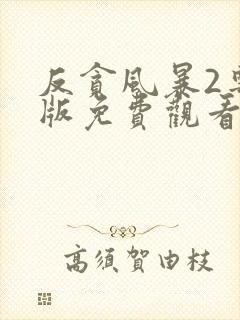 反貪風暴2粵
版免費觀看
高須賀由枝